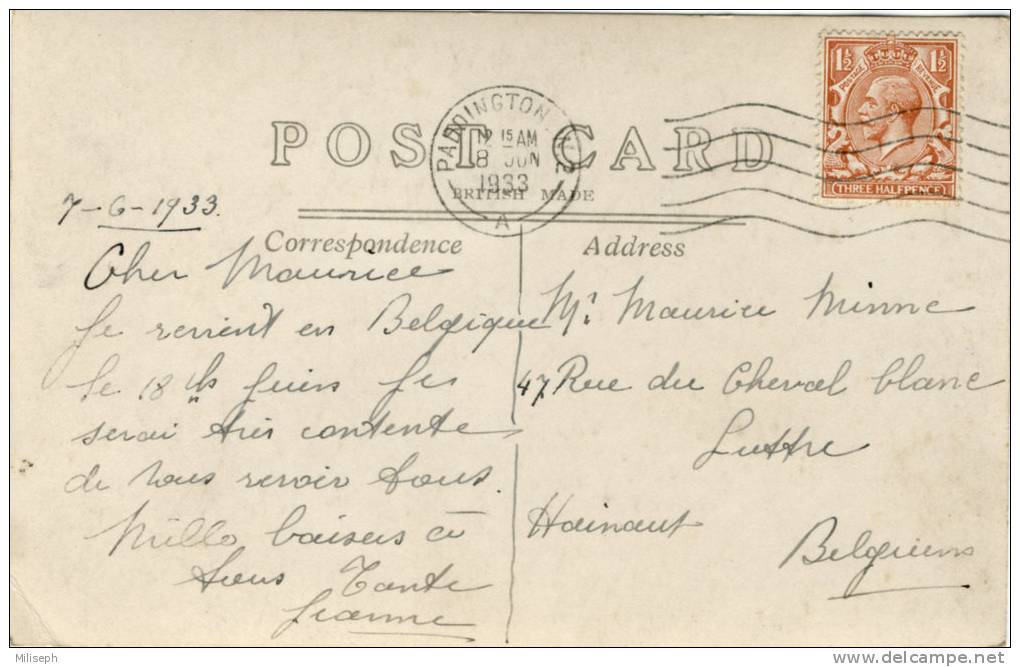 POST CARD
BRITISH MADE
PADDINGTON W.2
12 15 AM
8 JUN
1933
A
1½ 1½
POSTAGE REVENUE
THREE HALFPENCE
7-6-1933.
Correspondence
Cher Maurice
Je revient en Belgique
le 18 juin je
serai très contente
de vous revoir tous
Mille baisers à
tous Tante
Jeanne
Address
Mr Maurice Minne
47 Rue du Cheval blanc
Luttre
Hainaut
Belgium
Miliseph
www.delcampe.net